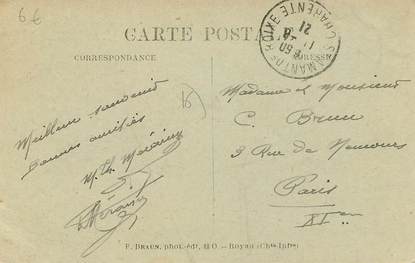 6€
CARTE POSTA
CORRESPONDANCE
ADRESSE
CHARENTE
21
16
Meilleur souvenir
Bonnes amitiés
M. Th.
Madame et Monsieur
C. Brun
3 Rue de Nemours
Paris
XIem
F. BRAUN, phot.-édit, ROYAN (Chte-Infre)